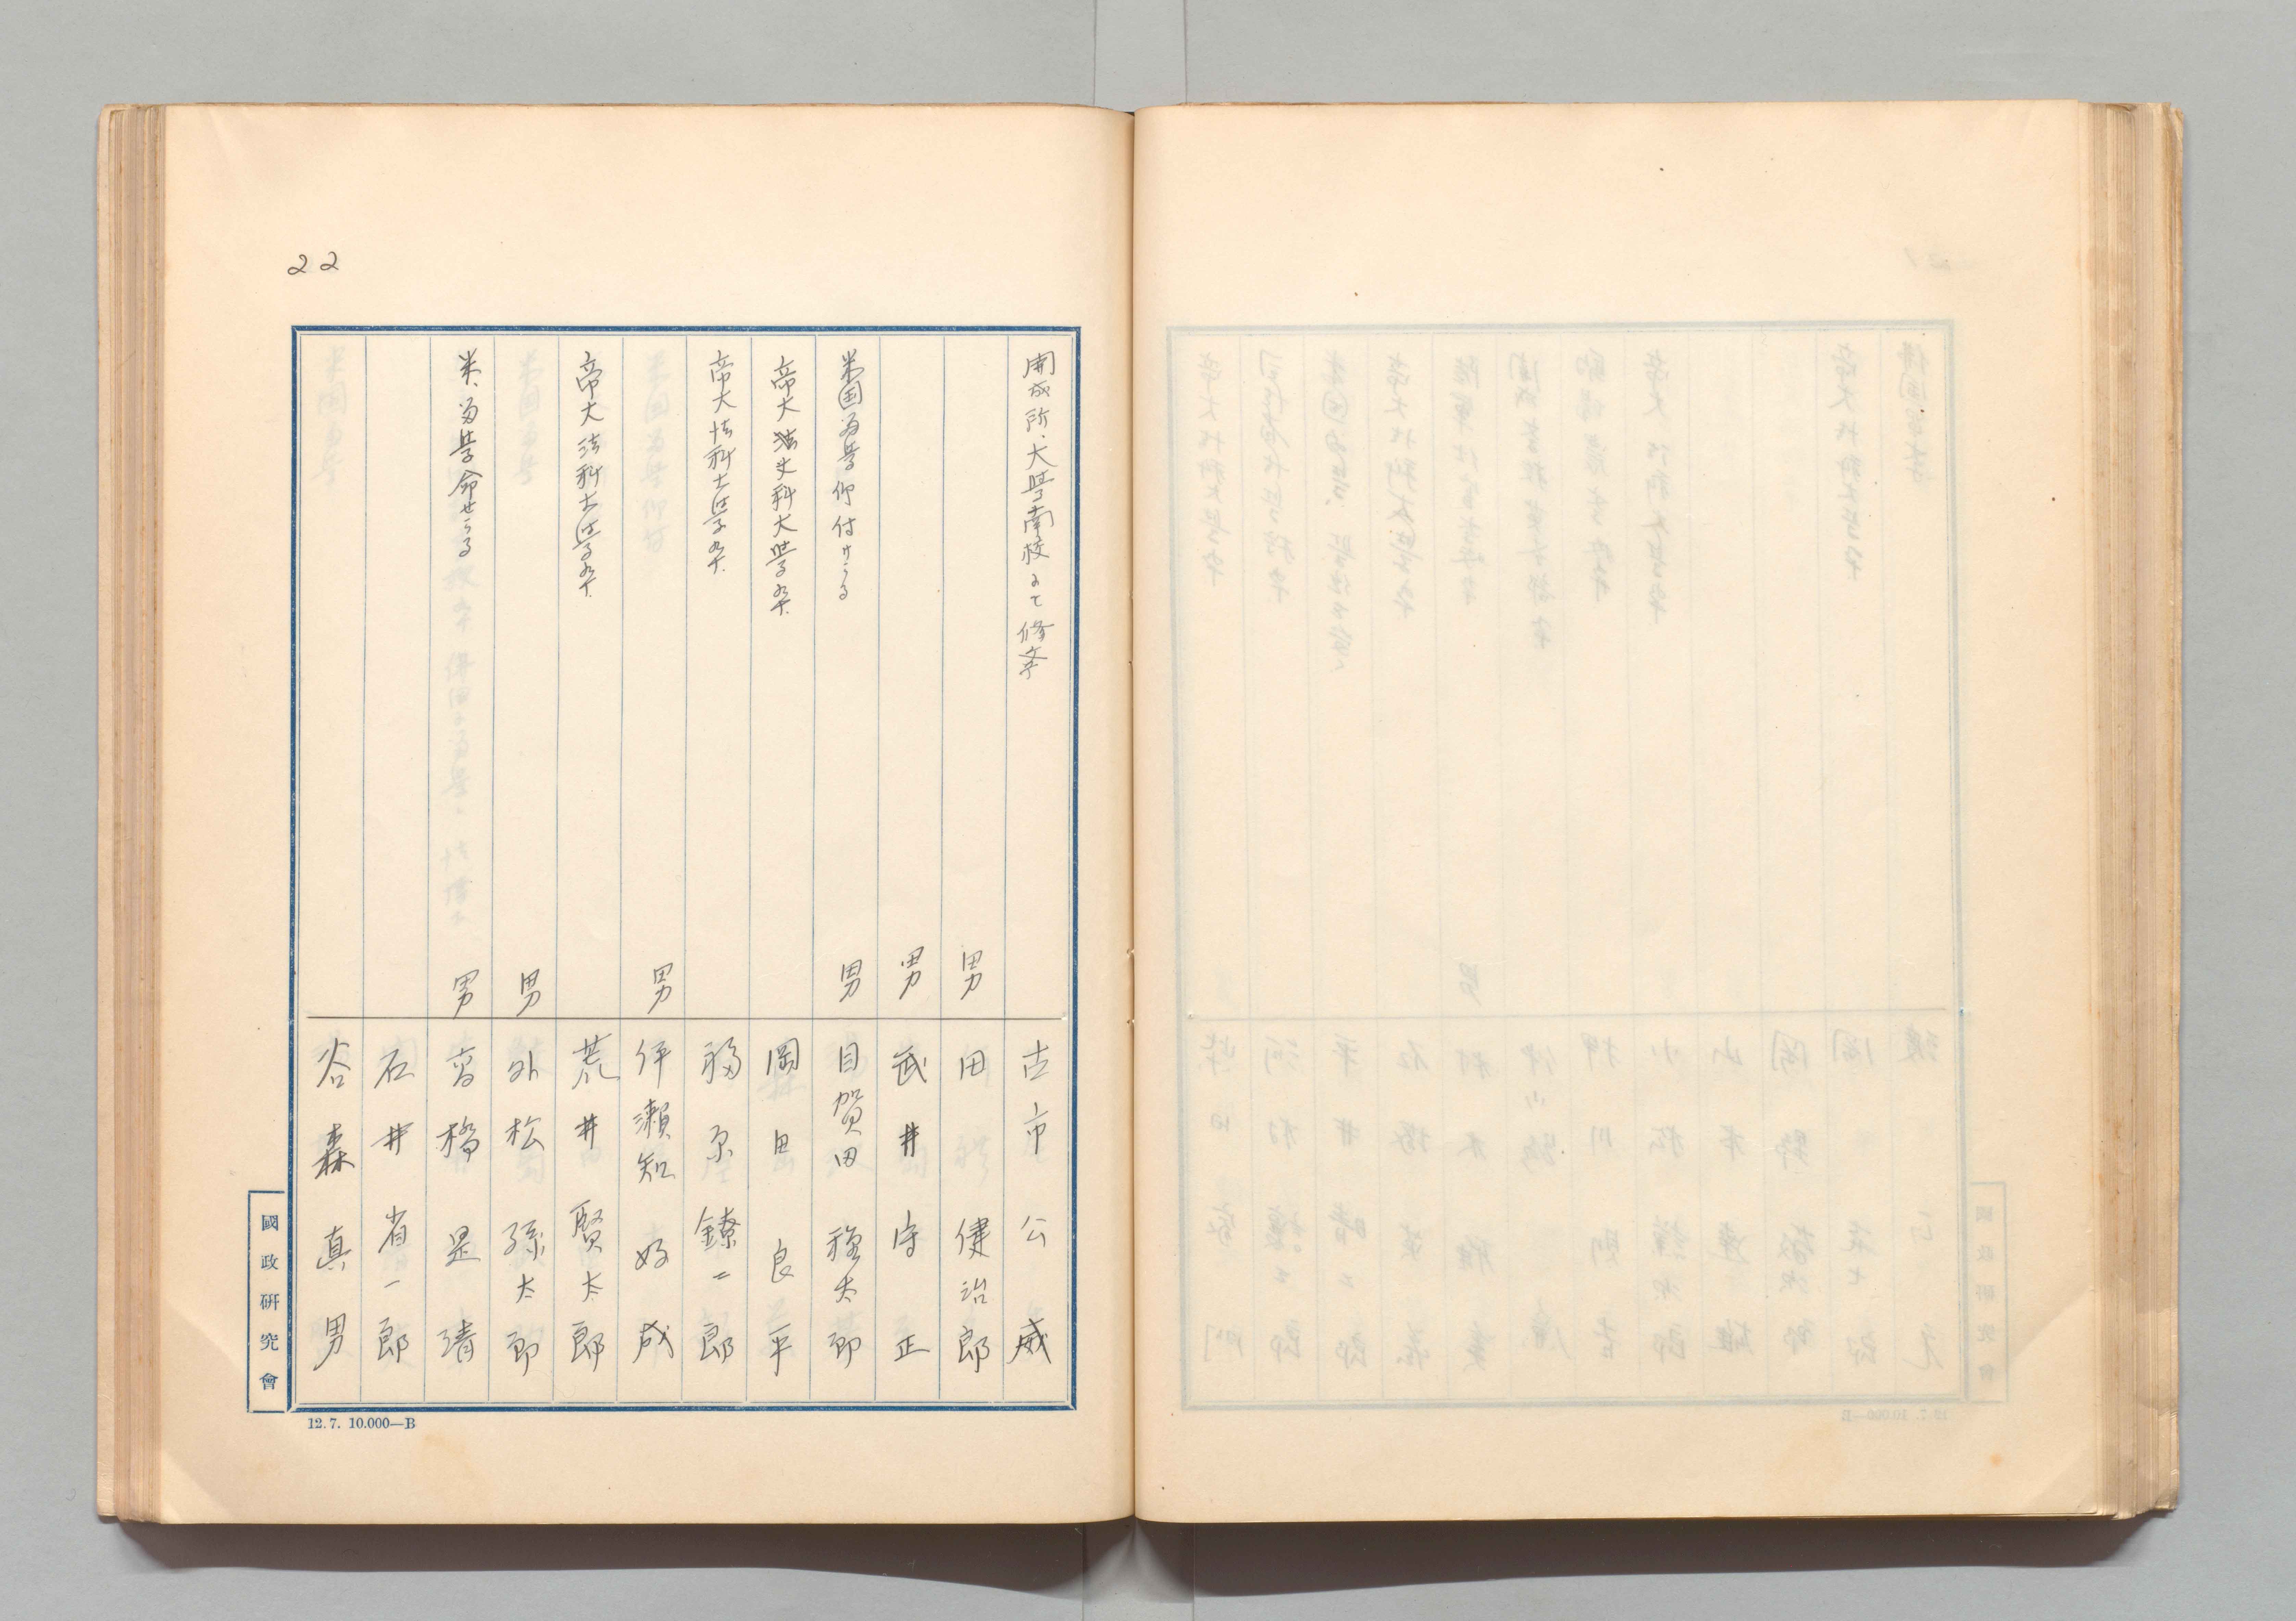 22
開成所、大学南校にて修業
古市公威
男
田健治郎
男
武井守正
米国留学仰付けらる
男
目賀田種太郎
帝大法文科大学卆.
岡田良平
帝大法科大学卆.
福原鐐二郎
男
伊瀬知好成
帝大法科大学卆.
荒井賢太郎
男
外松孫太郎
米、留学命せらる
男
高橋是清
石井省一郎
谷森真男
國政硏究會
12.7. 10.000—B